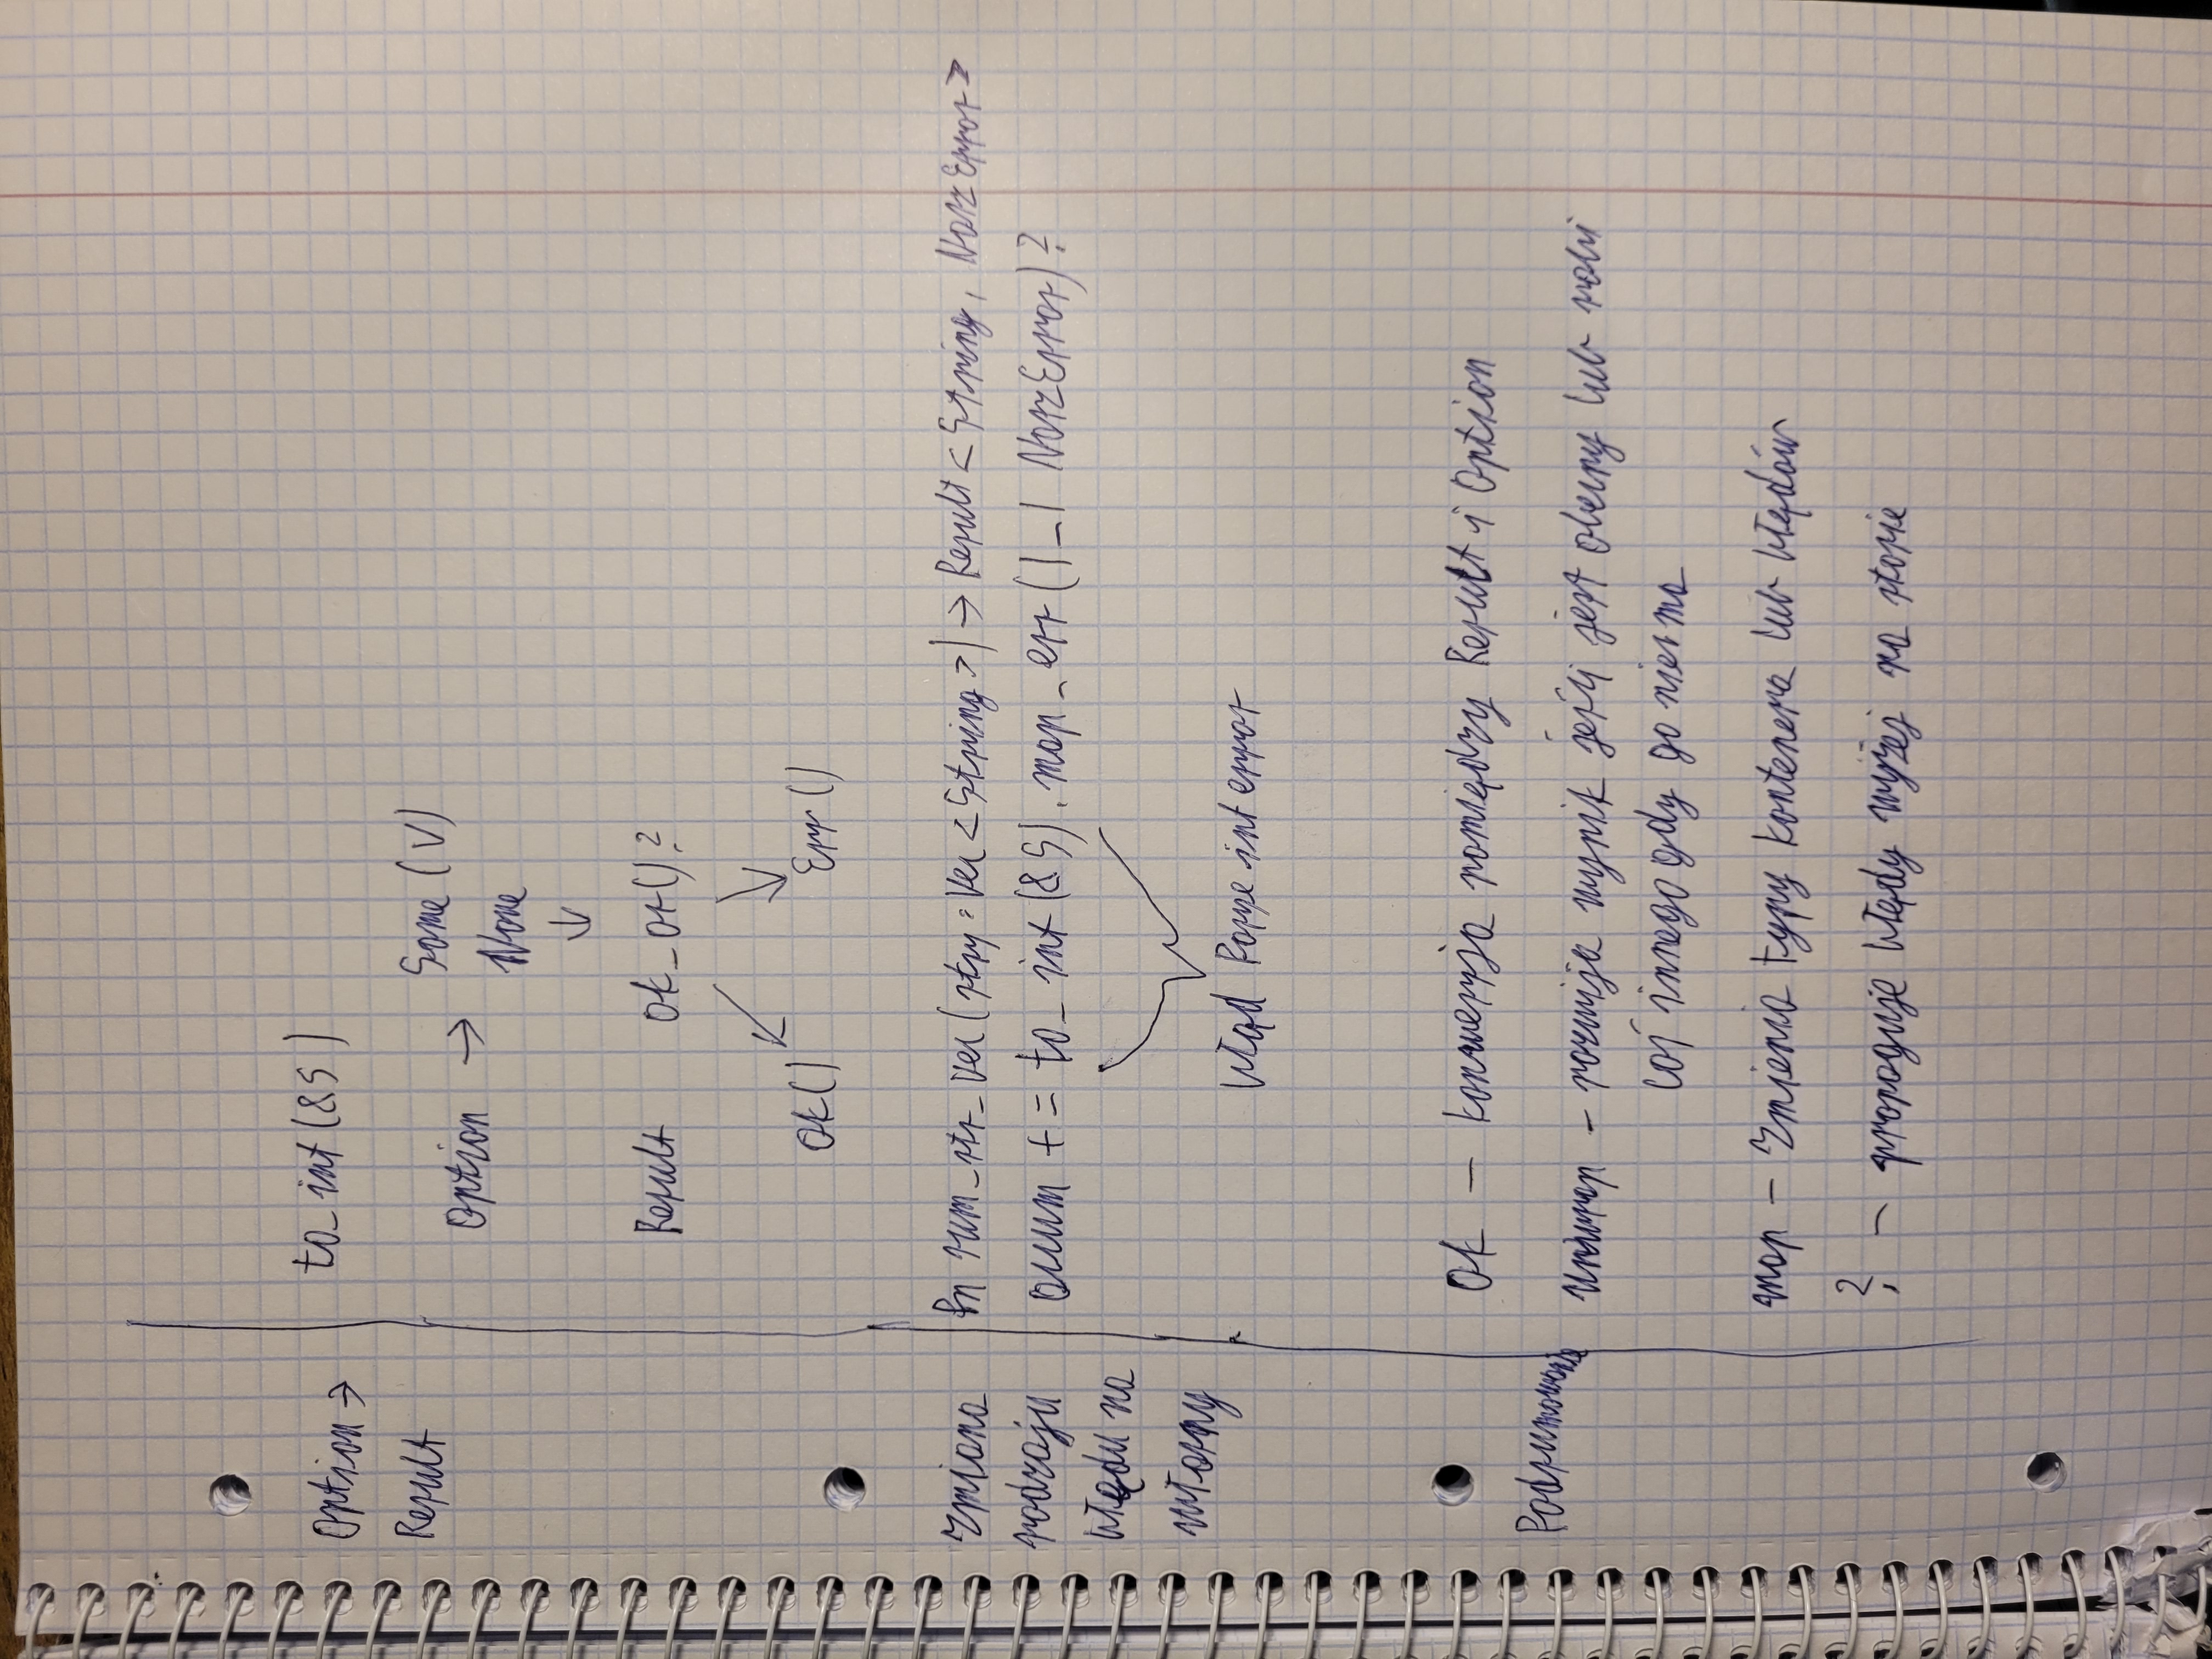 Option →
Result
to_int(&S)
Option → Some(V)
None
↓
Result ok_or()?
Ok() Err()
Zmiana
rodzaju
błędu na
własny
fn sum_str_vec(strs: Vec<String>) → Result<String, NaszError>
accum += to_int(&S).map_err(|_| NaszError)?
błąd Parse int error
Podsumowanie
Ok – konwersja pomiędzy Result i Option
unwrap – rozwija wynik jeśli jest obecny lub robi
coś innego gdy go nie ma
map – zmienia typy kontenera lub błędów
? – propaguje błędy wyżej na stosie